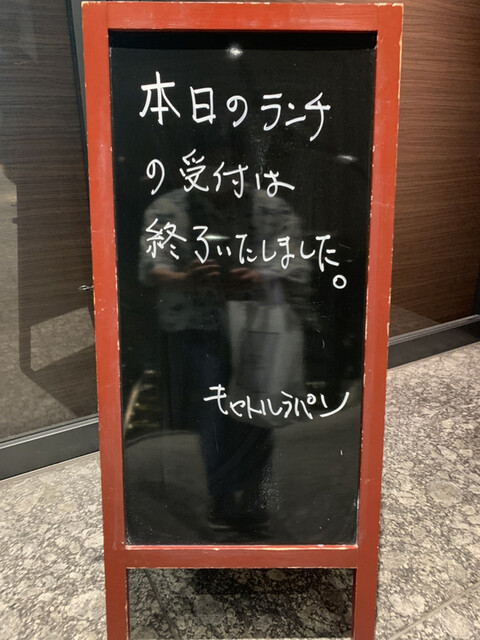 本日のランチ
の受付は
終了いたしました。
キャトルラパン